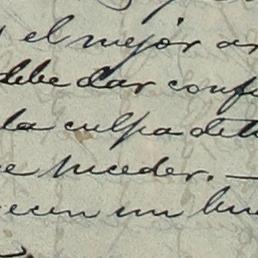 el mejor
debe dar conf
la culpa de
suceder. —
ecen un bu